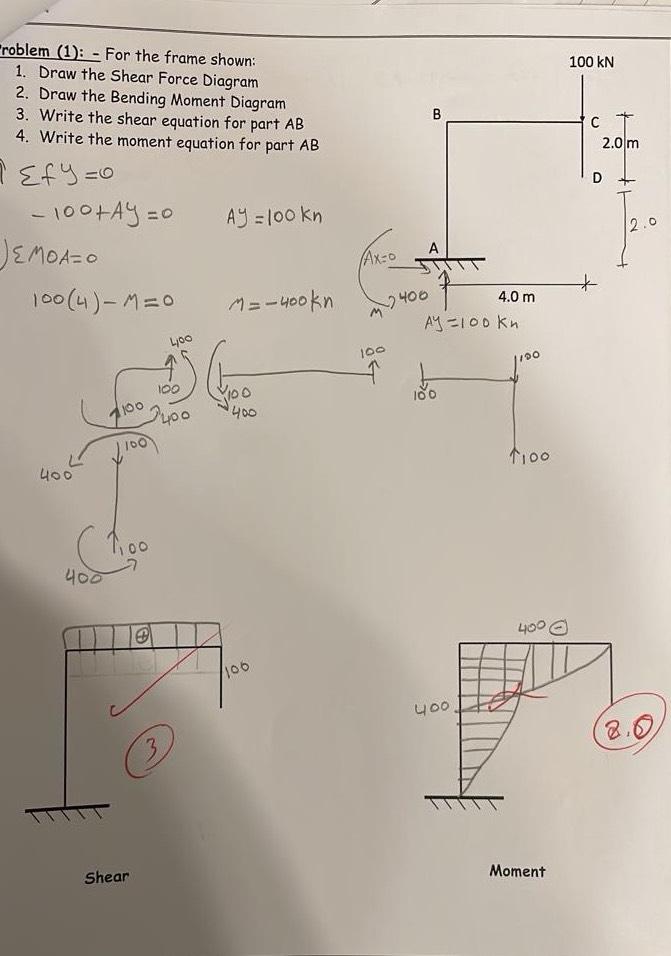 Problem (1): - For the frame shown:
1. Draw the Shear Force Diagram
2. Draw the Bending Moment Diagram
3. Write the shear equation for part AB
4. Write the moment equation for part AB
100 kN
B
C
2.0 m
D
2.0
A
Ax=0
400
M
4.0 m
Ay=100 Kn
Σfy=0
-100+Ay=0 Ay=100kn
ΣMOA=0
100(4)-M=0 M=-400kn
400
100
100
400
100
400
100
400
100
400
100
100
100
100
⊕
100
3
Shear
400 ⊖
400
2.0
Moment